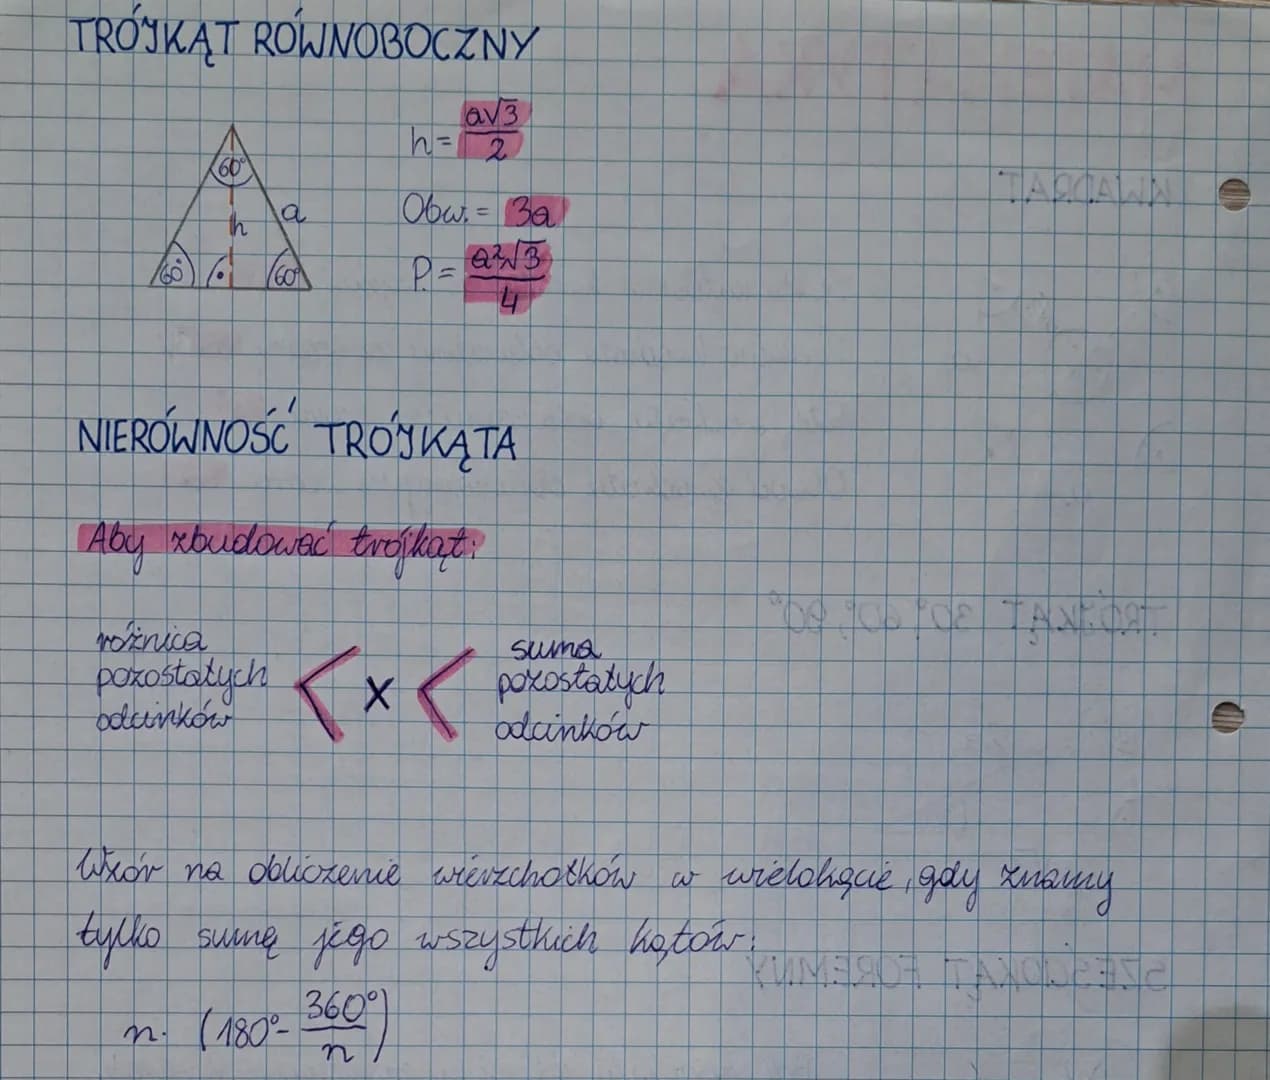 TRÓJKĄT RÓWNOBOCZNY
60°
h
a
60°
60°
h = a√3/2
Obw. = 3a
P = a²√3/4
NIERÓWNOŚĆ TRÓJKĄTA
Aby zbudować trójkąt:
różnica pozostałych odcinków < x < suma pozostałych odcinków
Wzór na obliczenie wierzchołków w wielokącie, gdy znamy
tylko sumę jego wszystkich kątów:
n · (180° - 360°/n)
KWADRAT
TRÓJKĄT 30°, 60°, 90°
SZEŚCIOKĄT FOREMNY